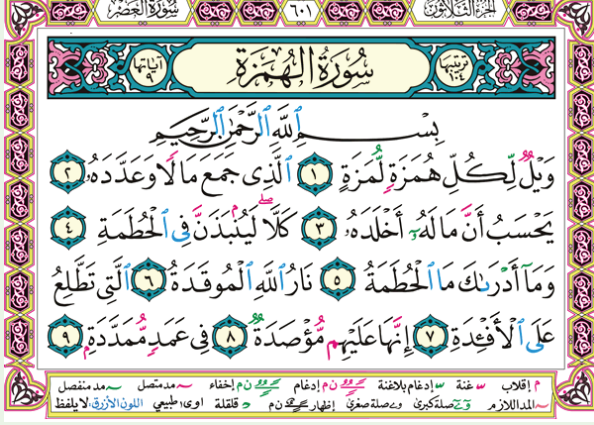 سُورَةُ العَصْر ٦٠١ الجُزْءُ الثَّلَاثُون
آياتها ٩ سُورَةُ الهُمَزَةِ ترتيبها ١٠٤
بِسْمِ ٱللَّهِ ٱلرَّحْمَٰنِ ٱلرَّحِيمِ
وَيْلٌ لِّكُلِّ هُمَزَةٍ لُّمَزَةٍ ١ ٱلَّذِى جَمَعَ مَالًا وَعَدَّدَهُۥ ٢
يَحْسَبُ أَنَّ مَالَهُۥٓ أَخْلَدَهُۥ ٣ كَلَّاۖ لَيُنۢبَذَنَّ فِى ٱلْحُطَمَةِ ٤
وَمَآ أَدْرَىٰكَ مَا ٱلْحُطَمَةُ ٥ نَارُ ٱللَّهِ ٱلْمُوقَدَةُ ٦ ٱلَّتِى تَطَّلِعُ
عَلَى ٱلْأَفْـِٔدَةِ ٧ إِنَّهَا عَلَيْهِم مُّؤْصَدَةٌ ٨ فِى عَمَدٍ مُّمَدَّدَةٍ ٩
م إقلاب س غنة س إدغام بلاغنة ن م إدغام ن م إخفاء ~ مد متصل ~ مد منفصل
~ المد اللازم صلة كبرى و ے صلة صغرى إظهار ن م د قلقلة اوى؛ طبيعي اللون الأزرق: لا يلفظ